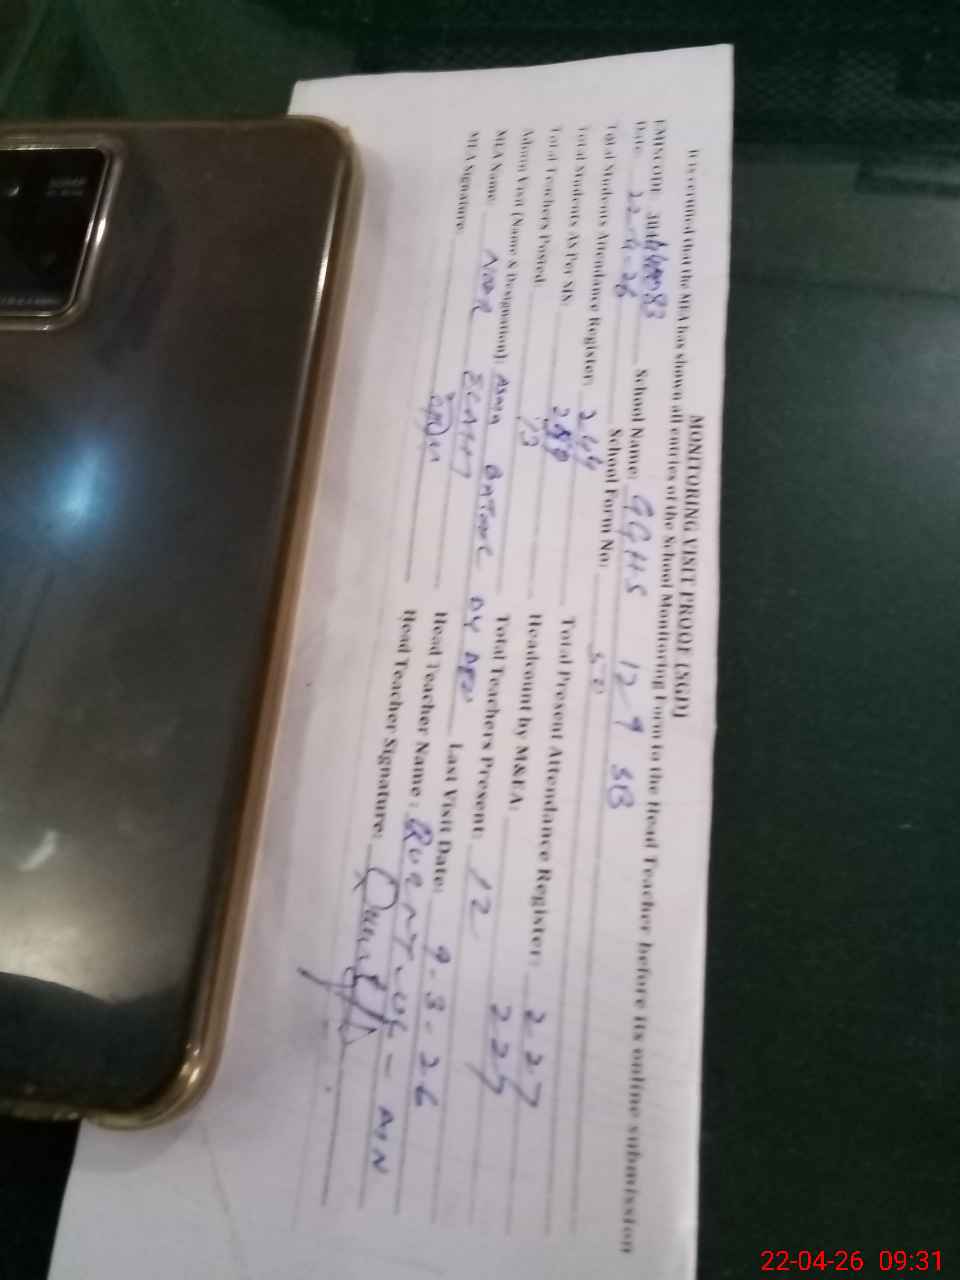 MONITORING VISIT PROOF (SGD)
It is certified that the MEA has shown all entries of the School Monitoring Form to the Head Teacher before its online submission
EMISCODE: School Name: GGHS 129 SB
Date: 22-4-26 School Form No: 50
Total Students Attendance Register: 244 Total Present Attendance Register: 227
Total Students As Per SIS: Headcount by M&EA: 227
Total Teachers Posted: 13 Total Teachers Present: 12
Admin Visit (Name & Designation): ASMA BATOOL DY DEO Last Visit Date: 9-3-26
MEA Name: NOOR ELAHI Head Teacher Name:
MEA Signature: Head Teacher Signature:
22-04-26 09:31